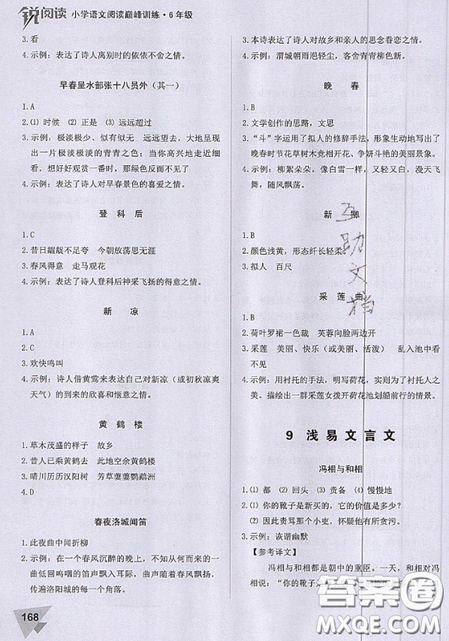 锐阅读 小学语文阅读巅峰训练·6年级
3.看
4.示例：表达了诗人离别时的依依不舍之情。
早春呈水部张十八员外（其一）
1.A
2.(1)时候 (2)正是 (3)远远超过
3.示例：极淡极少、似有似无 远远望去，大地呈现出一片极淡极淡的青青之色；当我兴奋地走近细看，想好好观赏一番时，那绿色却似有若无了。
4.示例：表达了诗人对早春景色的喜爱之情。
登科后
1.C
2.昔日龌龊不足夸 今朝放荡思无涯
3.春风得意 走马观花
4.示例：表达了诗人登科后神采飞扬的得意之情。
新凉
1.C
2.C
3.欢快鸣叫
4.示例：诗人借黄莺来表达自己对新凉（或初秋凉爽天气）的欣喜和惬意之情。
黄鹤楼
1.草木茂盛的样子 故乡
2.昔人已乘黄鹤去 此地空余黄鹤楼
3.晴川历历汉阳树 芳草萋萋鹦鹉洲
4.D
春夜洛城闻笛
1.此夜曲中闻折柳
2.示例：在一个春风沉醉的晚上，不知从何而来的曲低回呜咽的笛声飘入耳际，曲声随着春风飘扬，传遍洛阳城的每一个角落。
168
3.示例：表达了诗人对故乡和亲人的思念眷恋之情。
4.示例：渭城朝雨浥轻尘，客舍青青柳色新。
晚春
1.B
2.文学创作的思路，文思
3.“斗”字运用了拟人的修辞手法，形象生动地写出了晚春时节花草树木竞相开花、争妍斗艳的美丽景象。
4.示例：柳絮朵朵，像白雪一样，又轻又美，漫天飞舞，随风飘荡。
新柳
1.B
2.颜色浅黄，形态纤长轻柔。
3.拟人 百尺
采莲曲
1.B
2.荷叶罗裙一色裁 芙蓉向脸两边开
3.采莲 美丽、快乐（或美丽、活泼） 乱入池中看不见
4.示例：用衬托的手法，写景实则是为了衬托人之美。诗人描绘了一群采莲女在荷花池划船前行的情景。
9 浅易文言文
冯相与和相
1.(1)都 (2)回头 (3)责备 (4)慢慢地
2.(1)您的靴子是新买的，它的价值是多少？
(2)这一只靴子也是九百钱。
3.示例：诙谐幽默
【参考译文】
冯相与和相都是朝中的重臣。一天，冯相对和相说：“你的靴子
互助文档
答案圈
MXQE.COM